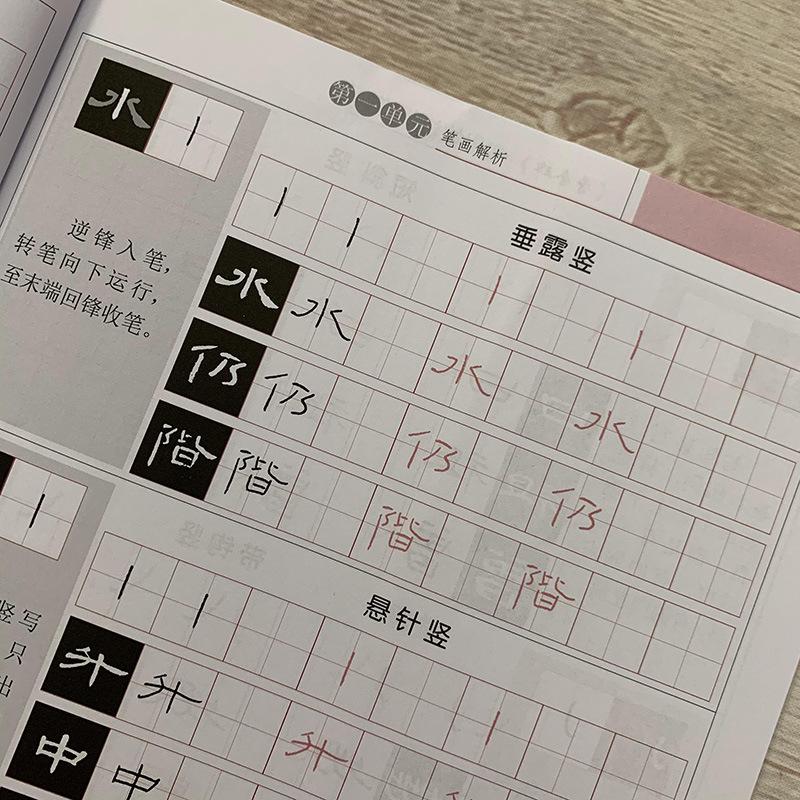 第一单元
笔画解析
水
逆锋入笔，
转笔向下运行，
至末端回锋收笔。
垂露竖
水 水 水 水
仍 仍 仍 仍
階 階 階 階
竖写
只
出
悬针竖
升 升 升
中 中